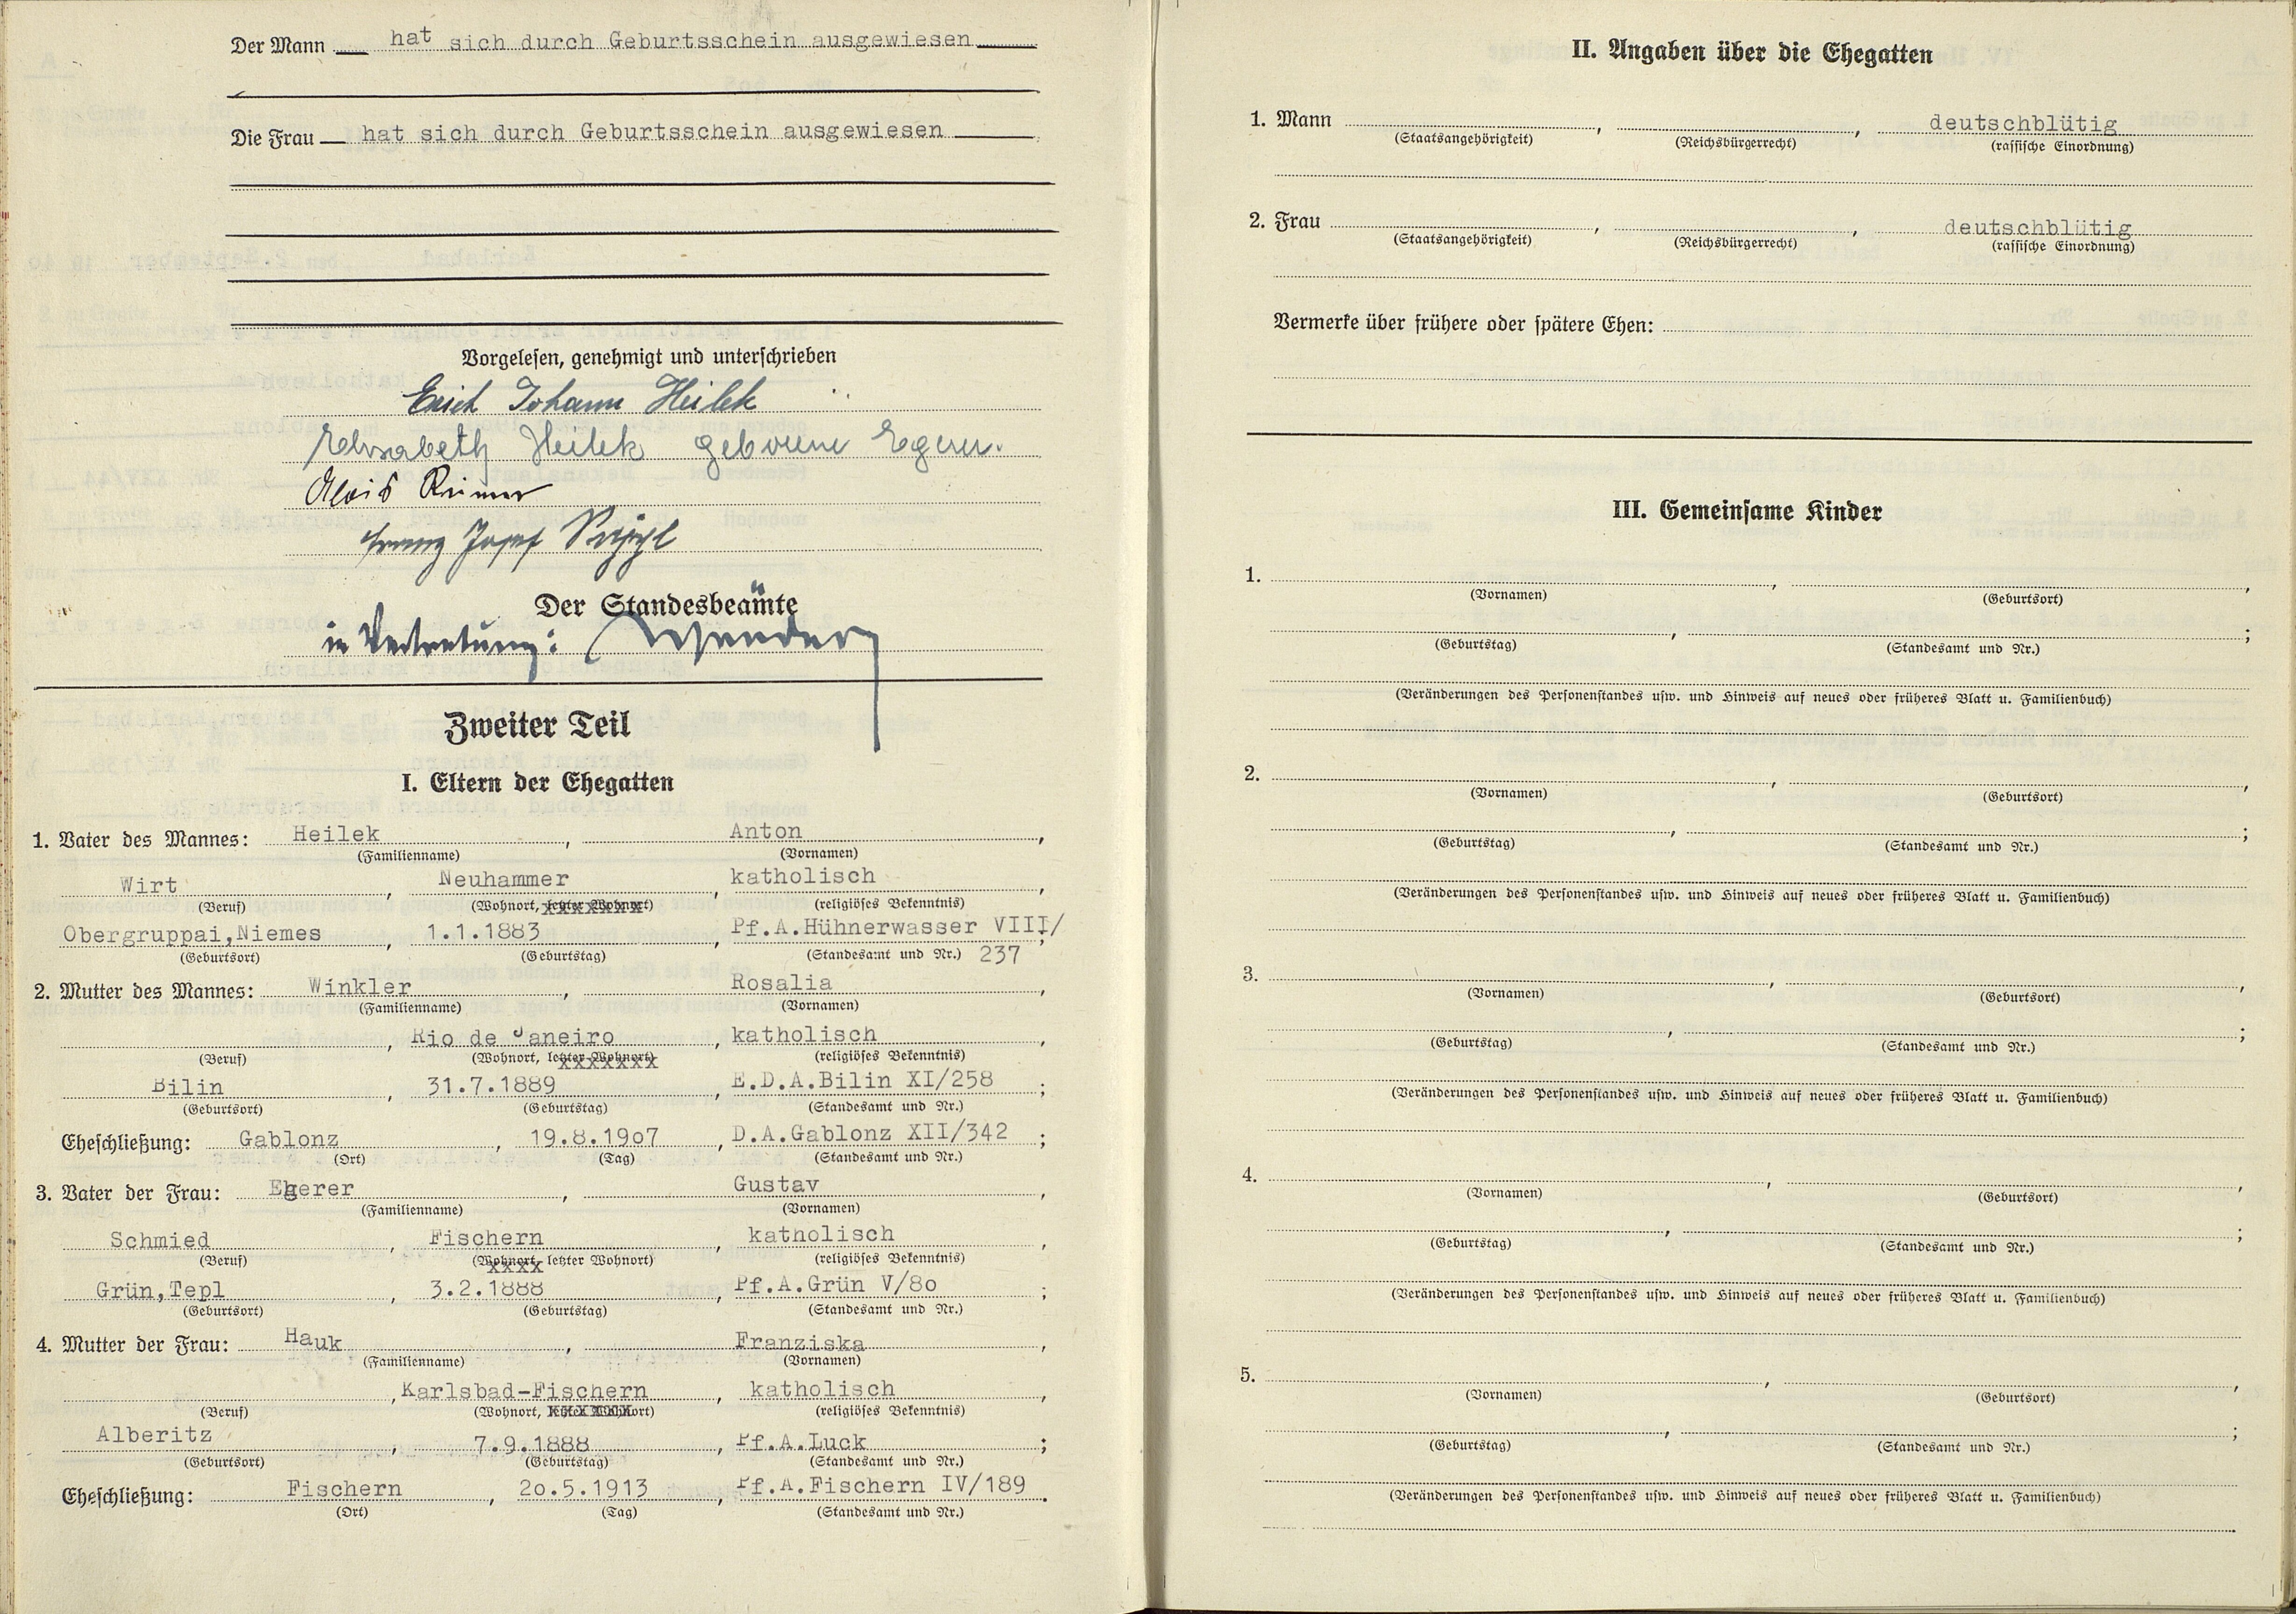 Der Mann hat sich durch Geburtsschein ausgewiesen
Die Frau hat sich durch Geburtsschein ausgewiesen
Vorgelesen, genehmigt und unterschrieben
Erich Johann Heilek
Elisabeth Heilek geborene Egerer.
Alois Reimer
Franz Josef
Der Standesbeamte
in Vertretung:
Zweiter Teil
I. Eltern der Ehegatten
1. Vater des Mannes: Heilek, Anton,
(Familienname) (Vornamen)
Wirt, Neuhammer, katholisch,
(Beruf) (Wohnort, letzter Wohnort) (religiöses Bekenntnis)
Obergruppai,Niemes, 1.1.1883, Pf.A.Hühnerwasser VIII/;
(Geburtsort) (Geburtstag) (Standesamt und Nr.) 237
2. Mutter des Mannes: Winkler, Rosalia,
(Familienname) (Vornamen)
, Rio de Janeiro, katholisch,
(Beruf) (Wohnort, letzter Wohnort) (religiöses Bekenntnis)
Bilin, 31.7.1889, E.D.A.Bilin XI/258;
(Geburtsort) (Geburtstag) (Standesamt und Nr.)
Eheschließung: Gablonz, 19.8.19o7, D.A.Gablonz XII/342;
(Ort) (Tag) (Standesamt und Nr.)
3. Vater der Frau: Egerer, Gustav,
(Familienname) (Vornamen)
Schmied, Fischern, katholisch,
(Beruf) (Wohnort, letzter Wohnort) (religiöses Bekenntnis)
Grün,Tepl, 3.2.1888, Pf.A.Grün V/8o;
(Geburtsort) (Geburtstag) (Standesamt und Nr.)
4. Mutter der Frau: Hauk, Franziska,
(Familienname) (Vornamen)
, Karlsbad-Fischern, katholisch,
(Beruf) (Wohnort, letzter Wohnort) (religiöses Bekenntnis)
Alberitz, 7.9.1888, Pf.A.Luck;
(Geburtsort) (Geburtstag) (Standesamt und Nr.)
Eheschließung: Fischern, 2o.5.1913, Pf.A.Fischern IV/189.
(Ort) (Tag) (Standesamt und Nr.)
II. Angaben über die Ehegatten
1. Mann , , deutschblütig
(Staatsangehörigkeit) (Reichsbürgerrecht) (rassische Einordnung)
2. Frau , , deutschblütig
(Staatsangehörigkeit) (Reichsbürgerrecht) (rassische Einordnung)
Vermerke über frühere oder spätere Ehen:
III. Gemeinsame Kinder
1. , ,
(Vornamen) (Geburtsort)
, ;
(Geburtstag) (Standesamt und Nr.)
(Veränderungen des Personenstandes usw. und Hinweis auf neues oder früheres Blatt u. Familienbuch)
2. , ,
(Vornamen) (Geburtsort)
, ;
(Geburtstag) (Standesamt und Nr.)
(Veränderungen des Personenstandes usw. und Hinweis auf neues oder früheres Blatt u. Familienbuch)
3. , ,
(Vornamen) (Geburtsort)
, ;
(Geburtstag) (Standesamt und Nr.)
(Veränderungen des Personenstandes usw. und Hinweis auf neues oder früheres Blatt u. Familienbuch)
4. , ,
(Vornamen) (Geburtsort)
, ;
(Geburtstag) (Standesamt und Nr.)
(Veränderungen des Personenstandes usw. und Hinweis auf neues oder früheres Blatt u. Familienbuch)
5. , ,
(Vornamen) (Geburtsort)
, ;
(Geburtstag) (Standesamt und Nr.)
(Veränderungen des Personenstandes usw. und Hinweis auf neues oder früheres Blatt u. Familienbuch)